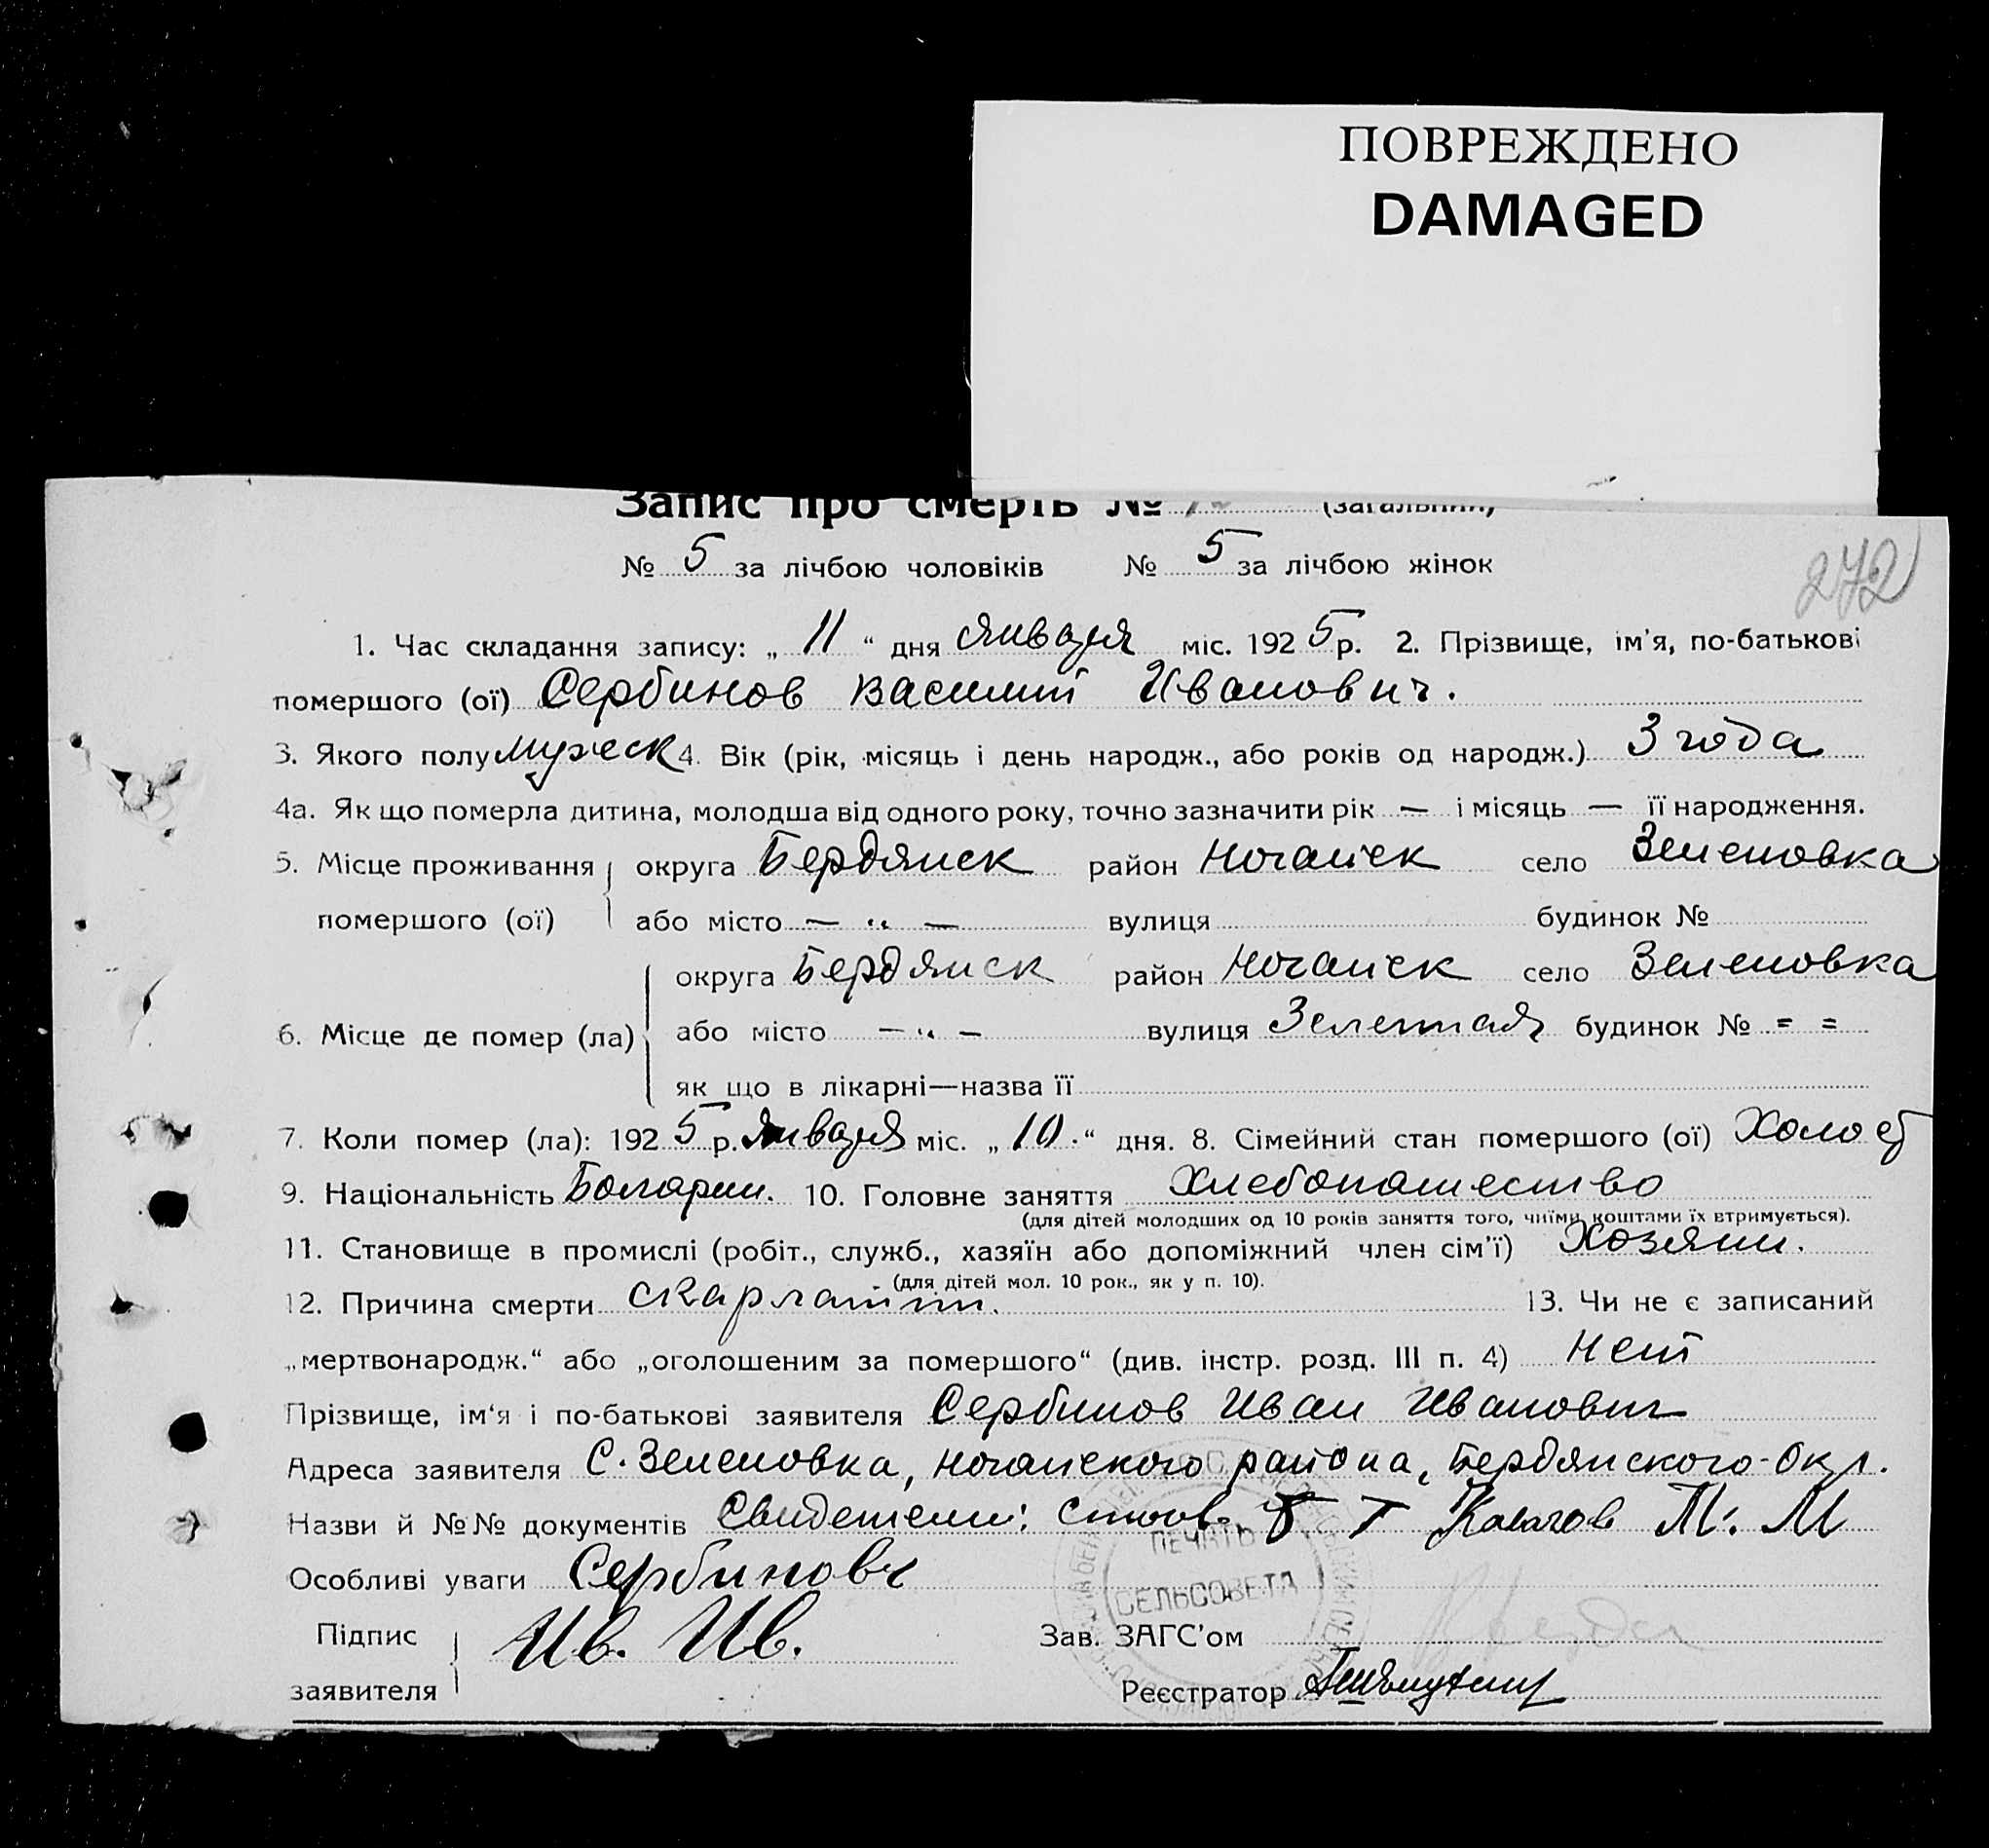 ПОВРЕЖДЕНО
DAMAGED
Запис про смерть № (загальний)
№ 5 за лічбою чоловіків № 5 за лічбою жінок
272
1. Час складання запису: „ 11 “ дня января міс. 1925 р. 2. Прізвище, ім'я, по-батькові
помершого (ої) Сербинов Василий Иванович.
3. Якого полу мужеск 4. Вік (рік, місяць і день народж., або років од народж.) 3 года
4а. Як що померла дитина, молодша від одного року, точно зазначити рік — і місяць — її народження.
5. Місце проживання округа Бердянск район Ногайск село Зеленовка
помершого (ої) або місто — „ — вулиця будинок №
округа Бердянск район Ногайск село Зеленовка
6. Місце де помер (ла) або місто — „ — вулиця Зеленная будинок № = =
як що в лікарні—назва її
7. Коли помер (ла): 1925 р. января міс. „ 10. “ дня. 8. Сімейний стан помершого (ої) Холост
9. Національність Болгарин. 10. Головне заняття Хлебопашество
(для дітей молодших од 10 років заняття того, чиїми коштами їх втримується).
11. Становище в промислі (робіт., служб., хазяїн або допоміжний член сім'ї) Хозяин.
(для дітей мол. 10 рок., як у п. 10).
12. Причина смерти скарлатин. 13. Чи не є записаний
„мертвонародж.“ або „оголошеним за помершого“ (див. інстр. розд. III п. 4) Нет
Прізвище, ім'я і по-батькові заявителя Сербинов Иван Иванович
Адреса заявителя С. Зеленовка, Ногайского района, Бердянского Окр.
Назви й №№ документів Свидетели: М. М
Особливі уваги Сербинов
ПЕЧАТЬ
СЕЛЬСОВЕТА
Підпис Ив. Ив. Зав. ЗАГС'ом
заявителя Реєстратор